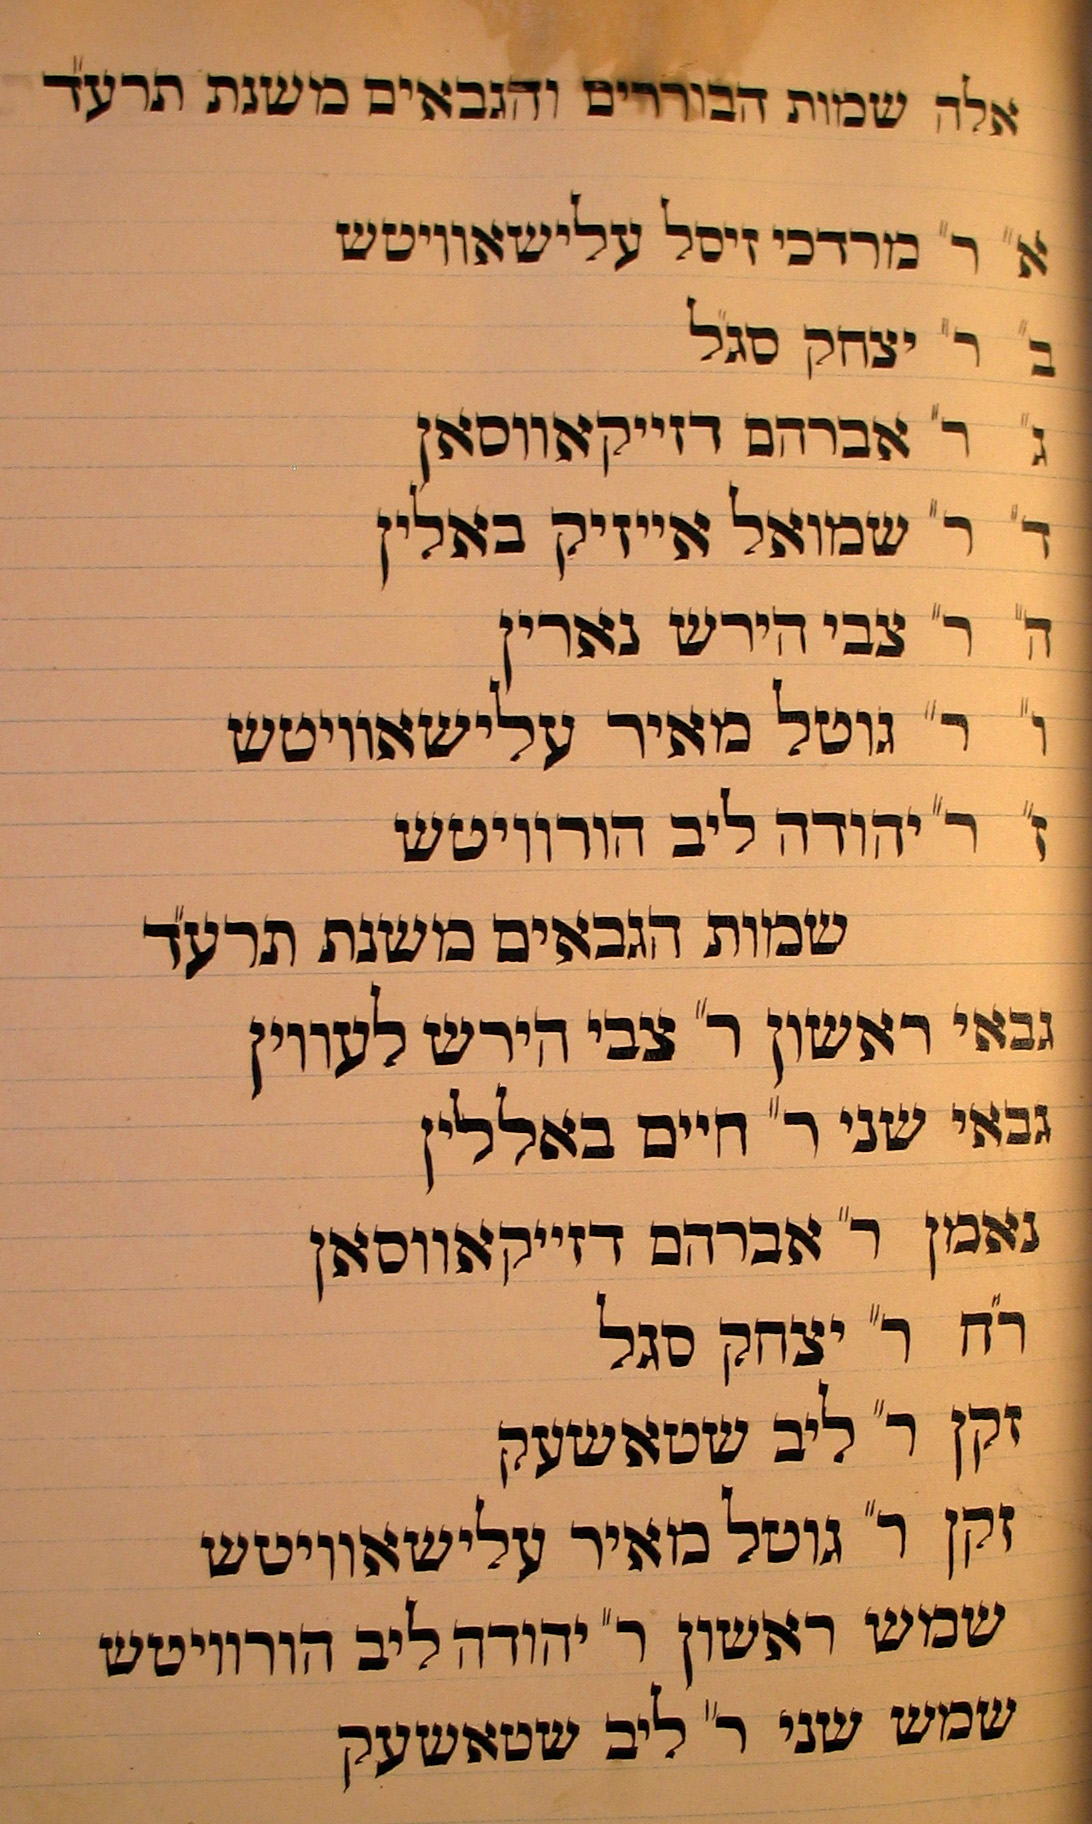 אלה שמות הבוררים והגבאים משנת תרע״ד
א״ ר״ מרדכי זיסל עלישאוויטש
ב״ ר״ יצחק סג״ל
ג״ ר״ אברהם דזייקאווסאן
ד״ ר״ שמואל אייזיק באלין
ה״ ר״ צבי הירש נארין
ו״ ר״ גוטל מאיר עלישאוויטש
ז״ ר״ יהודה ליב הורוויטש
שמות הגבאים משנת תרע״ד
גבאי ראשון ר״ צבי הירש לעווין
גבאי שני ר״ חיים באללין
נאמן ר״ אברהם דזייקאווסאן
ר״ח ר״ יצחק סגל
זקן ר״ ליב שטאשעק
זקן ר״ גוטל מאיר עלישאוויטש
שמש ראשון ר״ יהודה ליב הורוויטש
שמש שני ר״ ליב שטאשעק